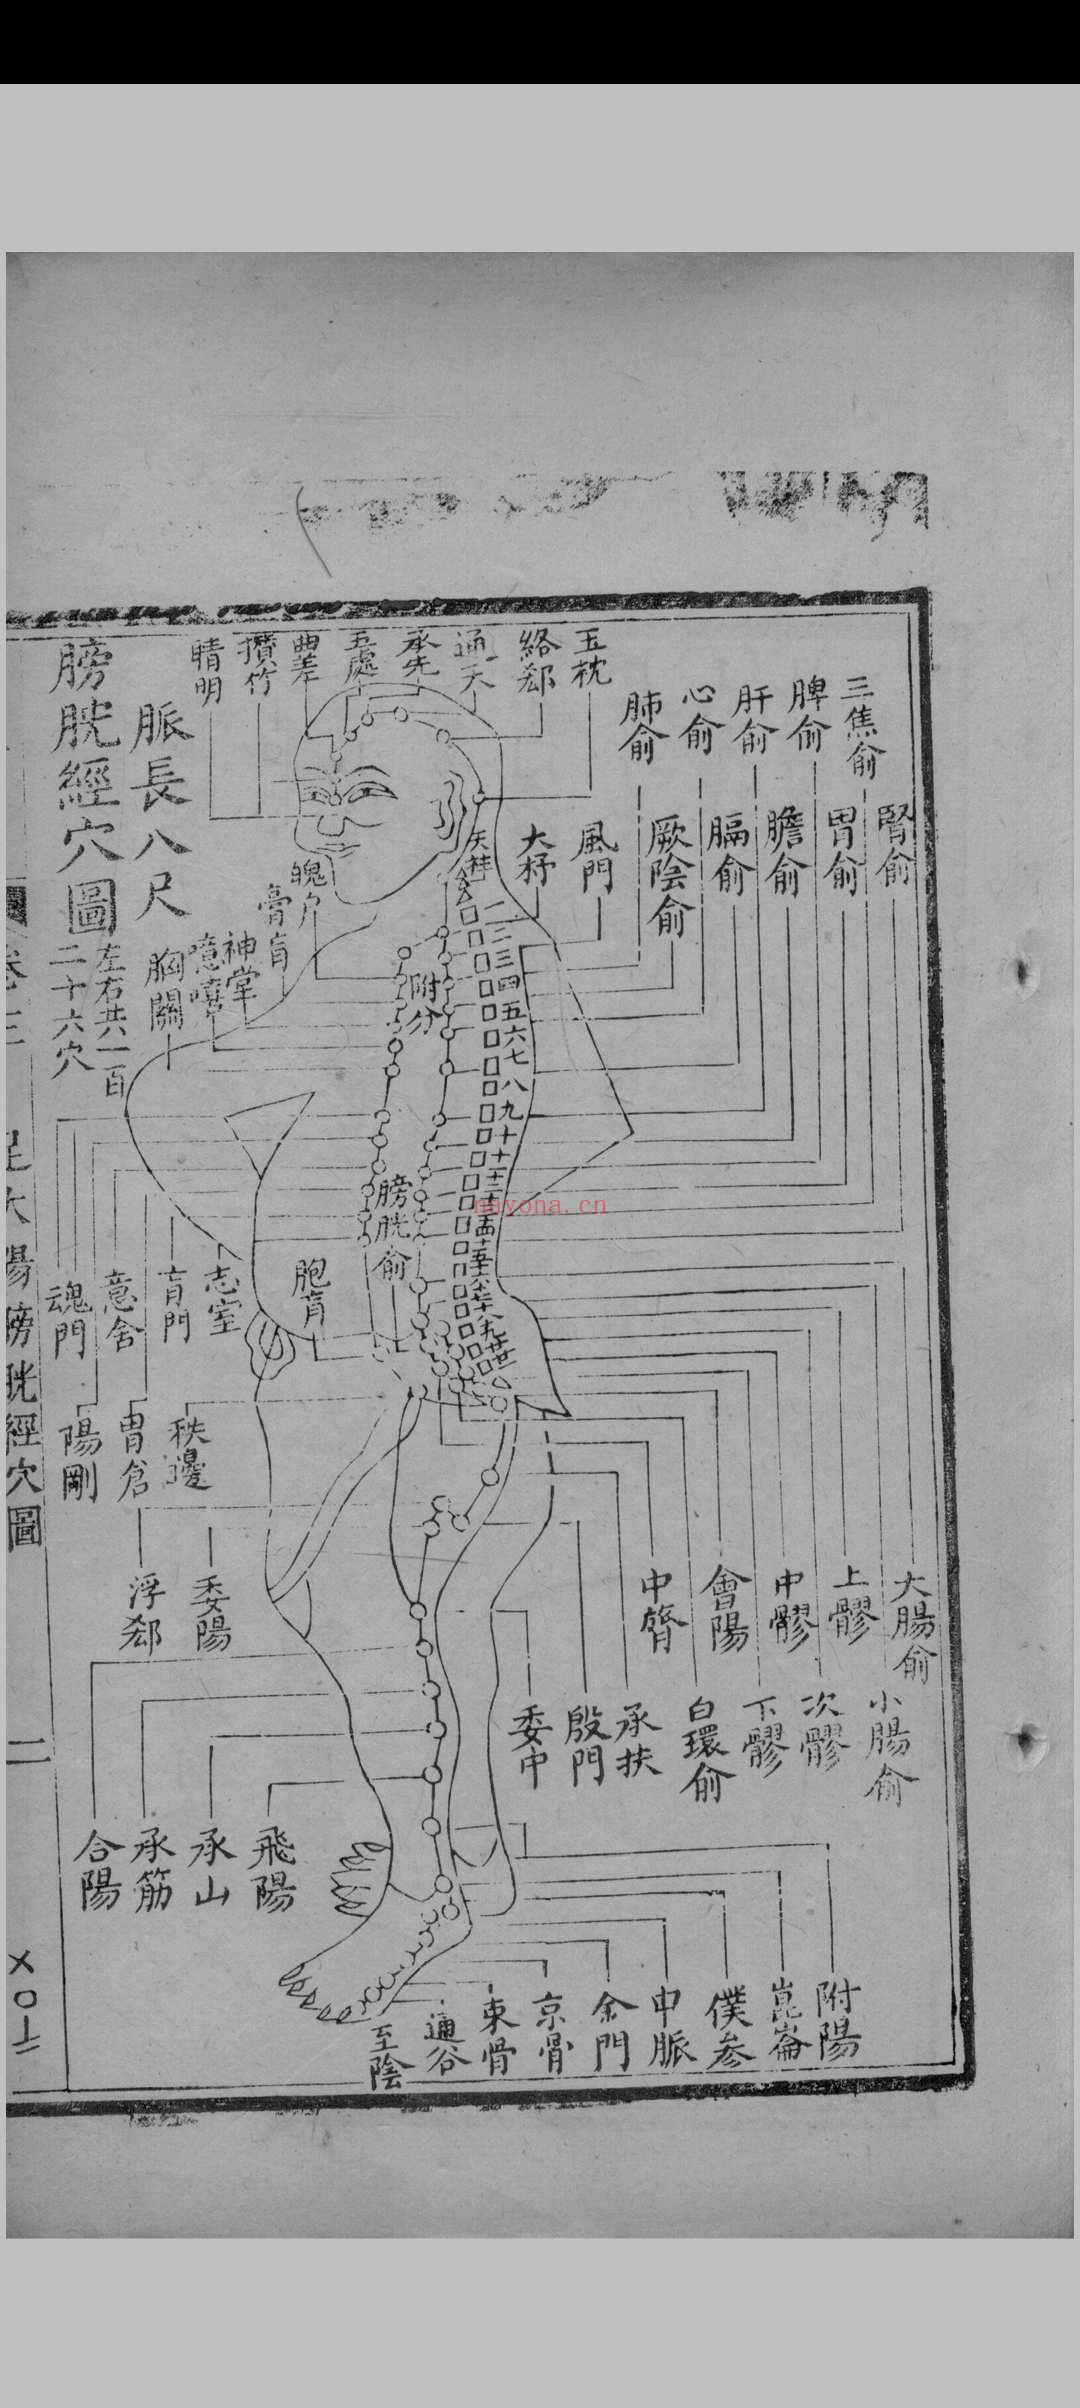 玉枕
絡郄
通天
承先
五處
曲差
攢竹
睛明
三焦俞
脾俞
肝俞
心俞
肺俞
腎俞
胃俞
膽俞
膈俞
厥陰俞
風門
大杼
天柱
魄户
膏肓
神堂
噫嘻
胸關
附分
脈長八尺
膀胱經穴圖
左右共一百
二十六穴
一
二
三
四
五
六
七
八
九
十
十一
十二
十三
十四
十五
膀胱俞
胞肓
志室
肓門
意舍
魂門
秩邊
胃倉
陽剛
委陽
浮郄
大腸俞
上髎
中髎
會陽
中膂
小腸俞
次髎
下髎
白環俞
承扶
殷門
委中
飛陽
承山
承筋
合陽
附陽
崑崙
僕參
申脈
金門
京骨
束骨
通谷
至陰
足太陽膀胱經穴圖
二
nayona.cn